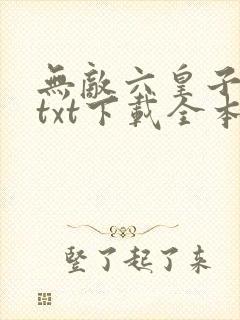 無敵六皇子
txt下載全本
竪了起了来